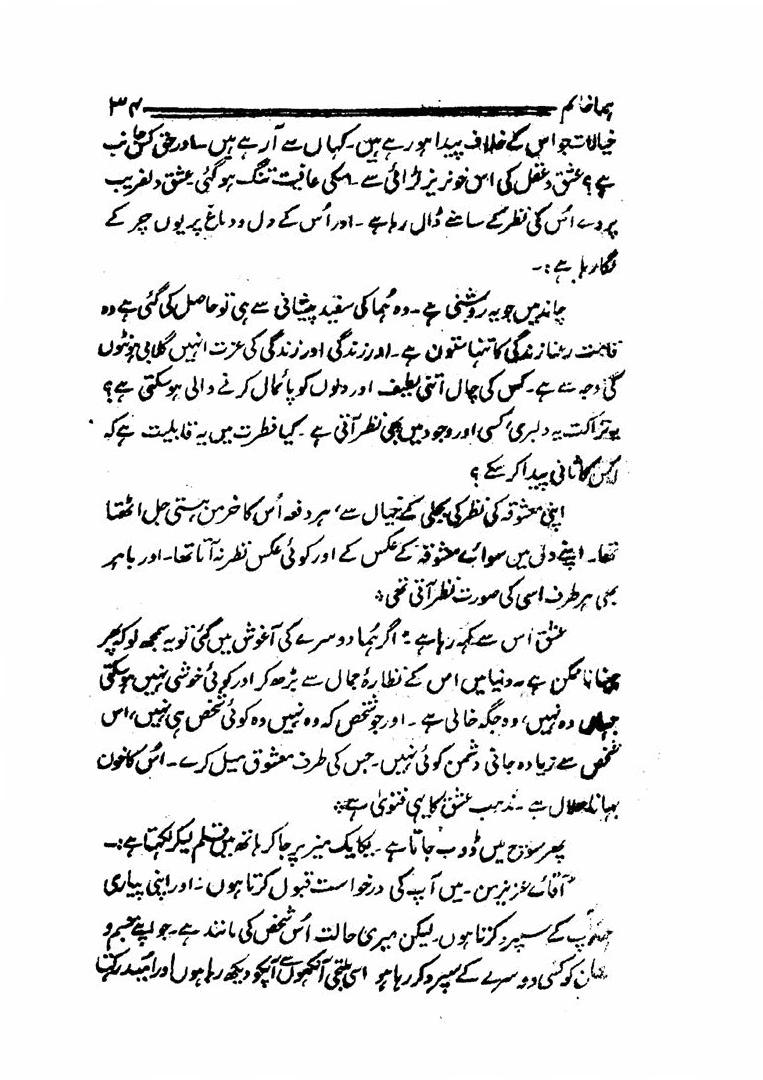 ہما خانم ۳۴
خیالات جو اس کے خلاف پیدا ہو رہے ہیں۔ کہاں سے آ رہے ہیں۔ اور حق کس جانب
ہے؟ عشق و عقل کی اس خونریز لڑائی سے اسکی عافیت تنگ ہو گئی عشق دلفریب
پردے اُس کی نظر کے سامنے ڈال رہا ہے۔ اور اُس کے دل و دماغ پر یوں چرکے
لگا رہا ہے:۔
چاند میں جو یہ روشنی ہے۔ وہ ہُما کی سفید پیشانی سے ہی تو حاصل کی گئی ہے وہ
قامت رعنا زندگی کا تنہا ستون ہے۔ اور زندگی اور زندگی کی عزت انہیں گلابی ہونٹوں
کی وجہ سے ہے۔ کس کی چال اتنی لطیف اور دلوں کو پائمال کرنے والی ہو سکتی ہے؟
یہ نزاکت یہ دلبری کسی اور وجود میں بھی نظر آتی ہے۔ کیا فطرت میں یہ قابلیت ہے کہ
اس کا ثانی پیدا کر سکے؟
اپنی معشوقہ کی نظر کی بجلی کے خیال سے، ہر دفعہ اُس کا خرمن ہستی جل اٹھتا
تھا۔ اپنے دل میں سوائے معشوقہ کے عکس کے اور کوئی عکس نظر نہ آتا تھا۔ اور باہر
بھی ہر طرف اسی کی صورت نظر آتی تھی۔
عشق اس سے کہہ رہا ہے: اگر ہُما دوسرے کی آغوش میں گئی تو یہ سمجھ لو کہ پھر
جینا ناممکن ہے۔ دنیا میں اس کے نظارۂ جمال سے بڑھ کر اور کوئی خوشی نہیں ہو سکتی
جہاں وہ نہیں، وہ جگہ خالی ہے۔ اور جو شخص کہ وہ نہیں وہ کوئی شخص ہی نہیں، اس
شخص سے زیادہ جانی دشمن کوئی نہیں۔ جس کی طرف معشوق میل کرے۔ اُس کا خون
بہانا حلال ہے۔ مذہب عشق کا یہی فتویٰ ہے۔
پھر سوچ میں ڈوب جاتا ہے۔ یکایک میز پر جا کر ہاتھ میں قلم لیکر لکھتا ہے:۔
"آقائے عزیز من۔ میں آپ کی درخواست قبول کرتا ہوں۔ اور اپنی پیاری
آپ کے سپرد کرتا ہوں۔ لیکن میری حالت اُس شخص کی مانند ہے۔ جو اپنے جسم و
جان کو کسی دوسرے کے سپرد کر رہا ہو اسی آنکھوں سے آپکو دیکھ رہا ہوں اور امید رکھتا